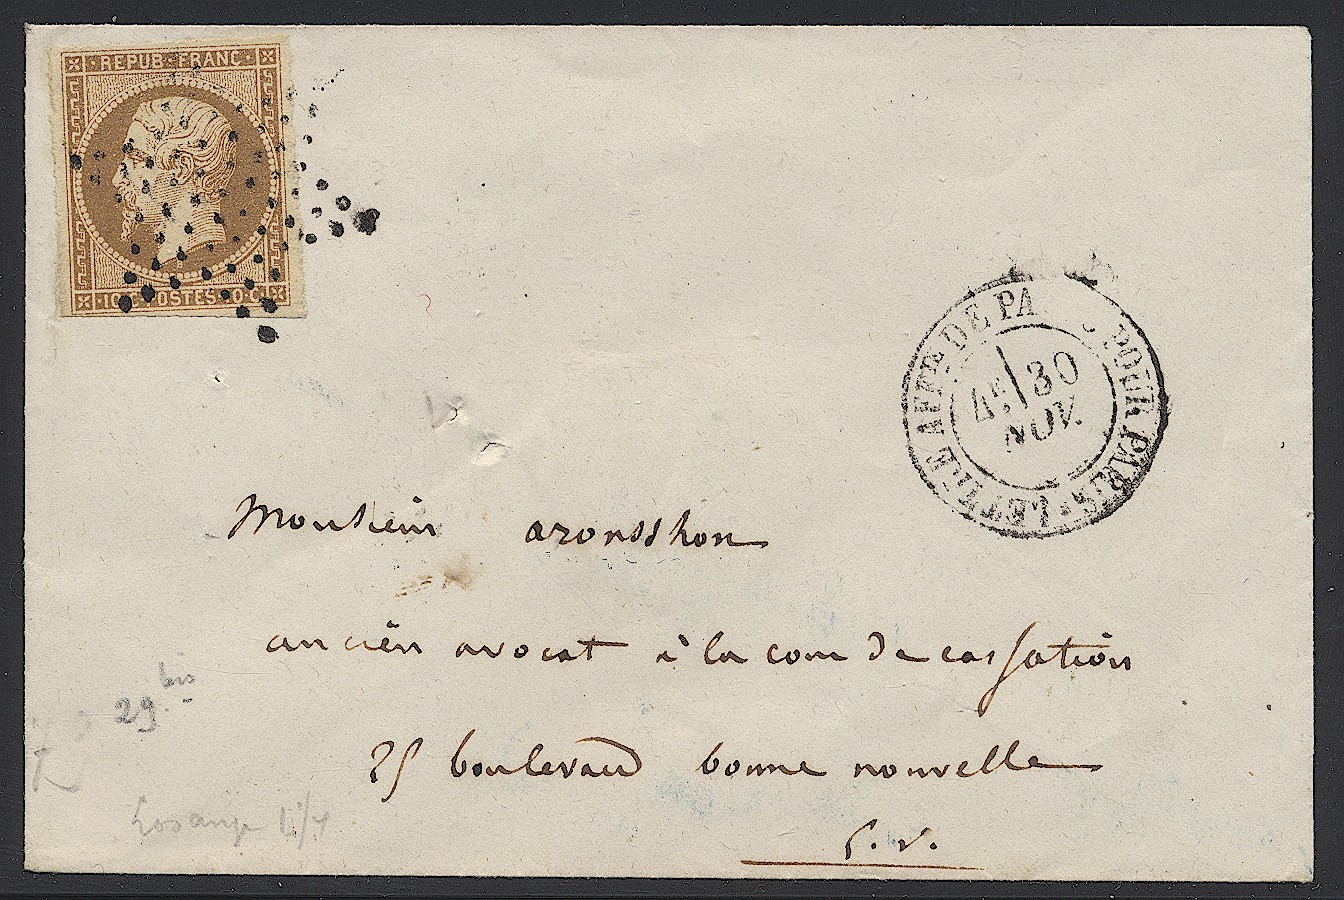 REPUB·FRANC·
10·C·POSTES·10·C·
LETTRE AFFR. DE PA POUR PARIS
4E 30
NOV.
Monsieur aronsshon
ancien avocat à la cour de cassation
29 bis
25 boulevard bonne nouvelle
Losange
E. V.